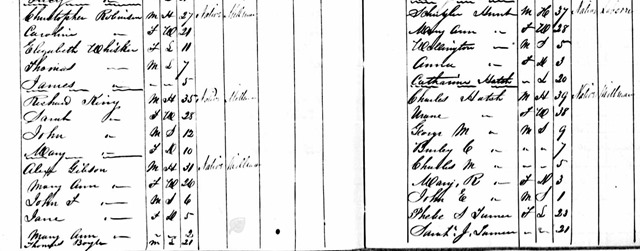 Christopher Robinson M H 27 Native Millman
Caroline " F W 21
Elizabeth Whisker F L 11
Thomas " M L 7
James " " " 5
Richard King M H 35
Sarah " F W 28
John " M S 12
Mary " F 10
Alexr Gibson M H 31 Native Millman
Mary Ann " F W 26
John F " M S 6
Jane " F 5
Mary Ann " " " 2
Thomas Boyle M L 21
Hunt M H 37 Native
Mary Ann " F W 28
Wellington " M S 5
Anna " F 3
Catharine Hatch " L 20
Charles Hatch M H 39 Native Millman
" F W 38
George M " M S 9
Burley C " " " 7
Charles M " " " 5
Mary R " F 3
John E " M S 1
Phebe S Turner F L 23
Sarah J Turner " " 21